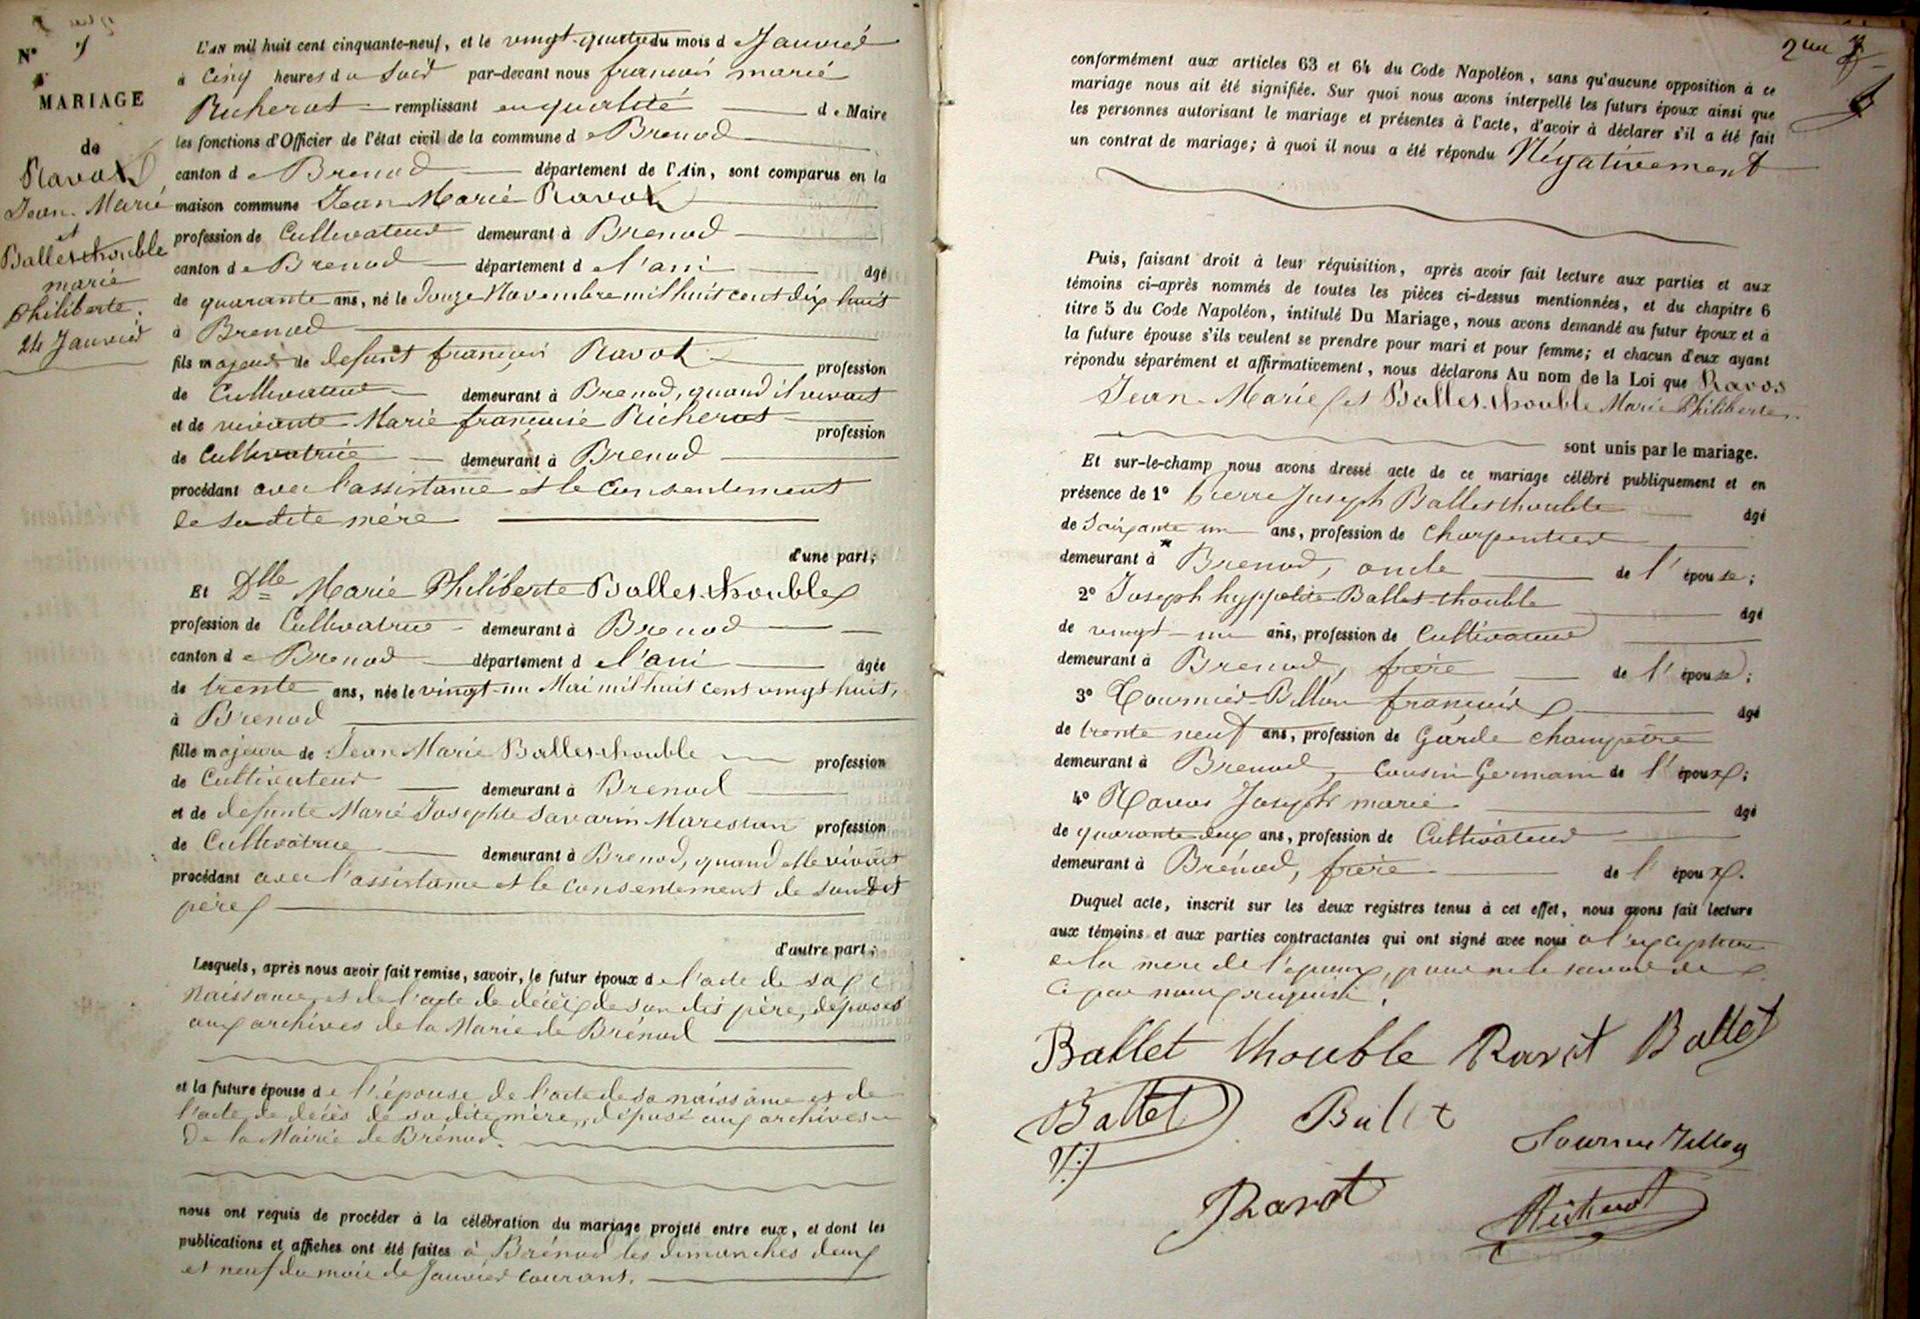 N° 1
MARIAGE
de
Ravot
Jean Marie
et
Ballet-thouble
marie
Philiberte.
24 Janvier
L'AN mil huit cent cinquante-neuf, et le vingt-quatre du mois de Janvier
à Cinq heures du Soir par-devant nous francois marie
Richerot remplissant en qualité de Maire
les fonctions d'Officier de l'état civil de la commune de Brenod
canton de Brenod département de l'Ain, sont comparus en la
maison commune Jean Marie Ravot
profession de Cultivateur demeurant à Brenod
canton de Brenod département de l'ain âgé
de quarante ans, né le Douze Novembre mil huit cent dix huit
à Brenod
fils majeur de defunt françois Ravot profession
de Cultivateur demeurant à Brenod, quand il vivait
et de vivante Marie françoise Richerot profession
de Cultivatrice demeurant à Brenod
procédant avec l'assistance et le Consentement
de sa dite mère
d'une part;
Et Dlle Marie Philiberte Ballet-thouble
profession de Cultivatrice demeurant à Brenod
canton de Brenod département de l'ain âgée
de trente ans, née le vingt-un Mai mil huit cent vingt huit,
à Brenod
fille majeure de Jean Marie Ballet-thouble profession
de Cultivateur demeurant à Brenod
et de defunte Marie Josephte Savarin Marestan profession
de Cultivatrice demeurant à Brenod, quand elle vivait
procédant avec l'assistance et le consentement de son dit
père
d'autre part;
Lesquels, après nous avoir fait remise, savoir, le futur époux de l'acte de sa
Naissance, et de l'acte de décès de son dit père, déposés
aux archives de la Marie de Brénod
et la future épouse de l'épouse de l'acte de sa naissance et de
l'acte de décès de sa dite mère, déposé aux archives
de la Mairie de Brénod.
nous ont requis de procéder à la célébration du mariage projeté entre eux, et dont les
publications et affiches ont été faites à Brénod les dimanches deux
et neuf du mois de Janvier courant.
conformément aux articles 63 et 64 du Code Napoléon, sans qu'aucune opposition à ce
mariage nous ait été signifiée. Sur quoi nous avons interpellé les futurs époux ainsi que
les personnes autorisant le mariage et présentes à l'acte, d'avoir à déclarer s'il a été fait
un contrat de mariage; à quoi il nous a été répondu Négativement
Puis, faisant droit à leur réquisition, après avoir fait lecture aux parties et aux
témoins ci-après nommés de toutes les pièces ci-dessus mentionnées, et du chapitre 6
titre 5 du Code Napoléon, intitulé Du Mariage, nous avons demandé au futur époux et à
la future épouse s'ils veulent se prendre pour mari et pour femme; et chacun d'eux ayant
répondu séparément et affirmativement, nous déclarons Au nom de la Loi que Ravot
Jean-Marie et Ballet-thouble Marie Philiberte
sont unis par le mariage.
Et sur-le-champ nous avons dressé acte de ce mariage célébré publiquement et en
présence de 1° Pierre Joseph Ballet-thouble âgé
de Soixante un ans, profession de Charpentier
demeurant à Brenod, oncle de l'épouse;
2° Joseph hyppolite Ballet-thouble âgé
de vingt-un ans, profession de Cultivateur
demeurant à Brenod, frère de l'épouse;
3° Tournier-Billon françois âgé
de trente neuf ans, profession de Garde champêtre
demeurant à Brenod, Cousin Germain de l'époux;
4° Ravot Joseph marie âgé
de quarante deux ans, profession de Cultivateur
demeurant à Brénod, frère de l'époux.
Duquel acte, inscrit sur les deux registres tenus à cet effet, nous avons fait lecture
aux témoins et aux parties contractantes qui ont signé avec nous à l'exception
de la mère de l'époux, pour ne le savoir de
ce par nous requise.
Ballet thouble Ravot Ballet
Ballet Ballet
Tournier Billon
Ravot
Richerot